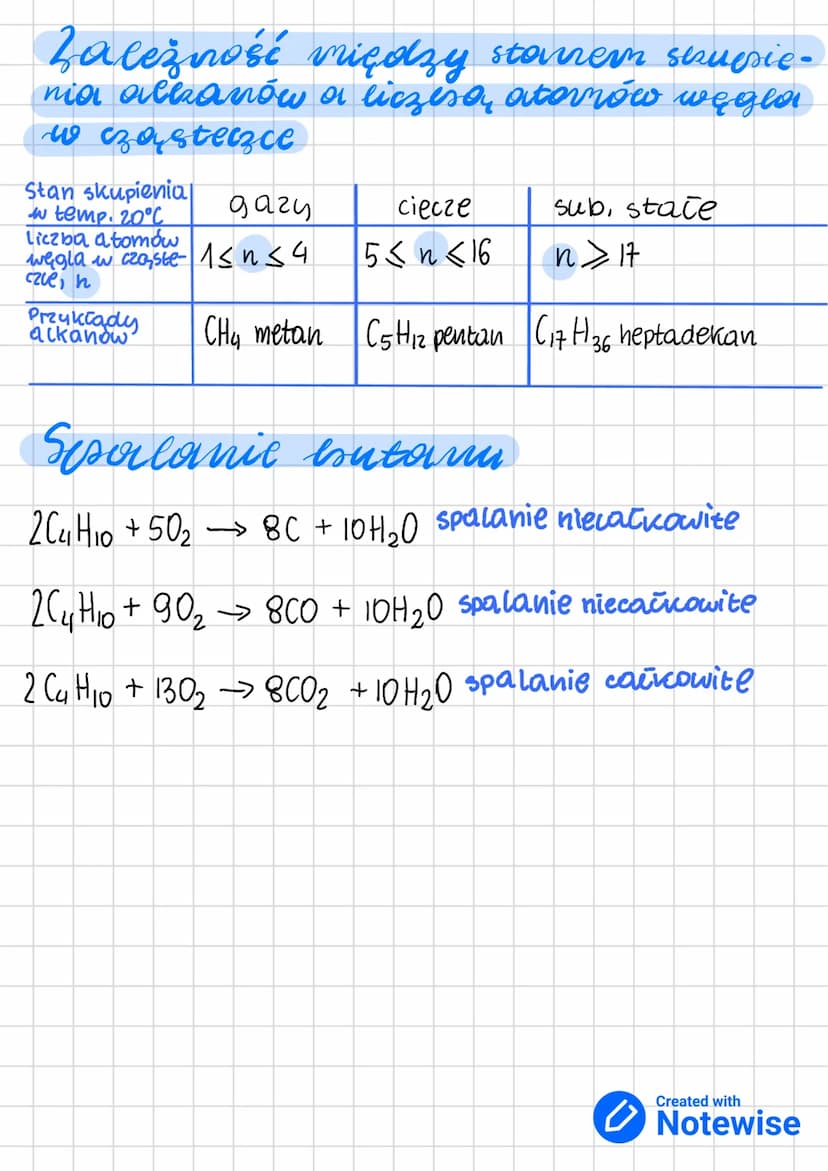 Zależność między stanem skupie-
nia alkanów a liczbą atomów węgla
w cząsteczce
Stan skupienia w temp. 20°C | gazy | ciecze | sub. stałe
liczba atomów węgla w cząste-czce, n | 1 ≤ n ≤ 4 | 5 ≤ n ≤ 16 | n ≥ 17
Przykłady alkanów | CH₄ metan | C₅H₁₂ pentan | C₁₇H₃₆ heptadekan
Spalanie butanu
2C₄H₁₀ + 5O₂ → 8C + 10H₂O spalanie niecałkowite
2C₄H₁₀ + 9O₂ → 8CO + 10H₂O spalanie niecałkowite
2C₄H₁₀ + 13O₂ → 8CO₂ + 10H₂O spalanie całkowite
Created with
Notewise